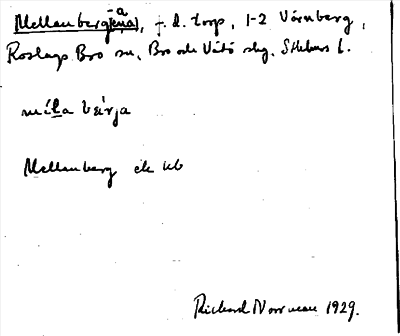 Mellanberg(ena), f. d. torp, 1-2 Vårnberg,
Roslags Bro sn, Bro och Vätö skg, Sthlms l.
Mellanberg ek kb
Richard Norrman 1929.